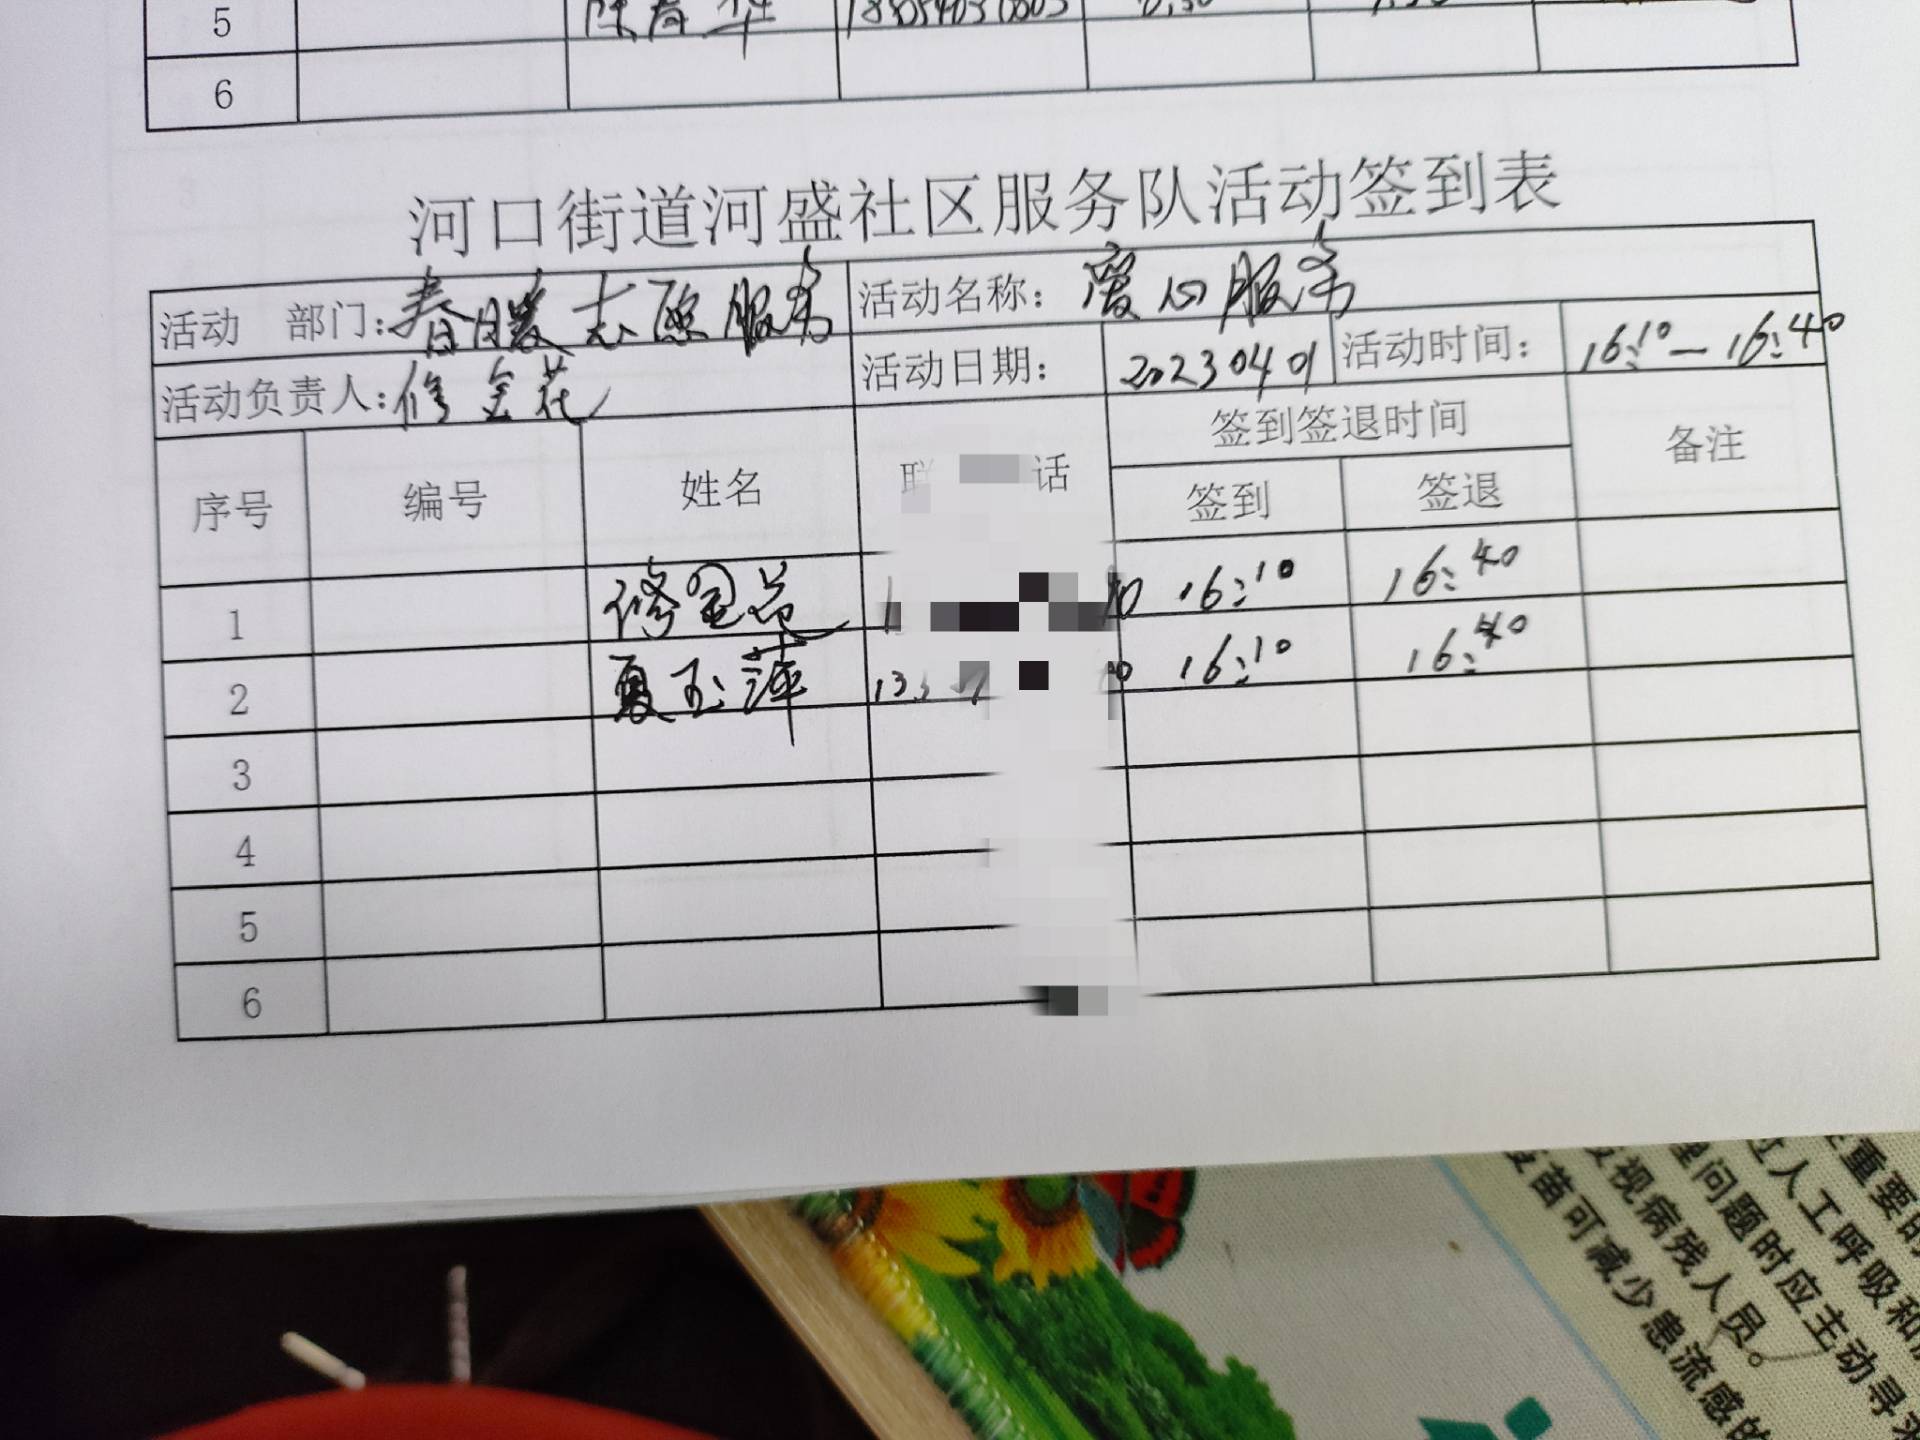 5 陈春华
6
河口街道河盛社区服务队活动签到表
活动 部门：春暖志愿服务 活动名称：爱心服务
活动负责人：修金花 活动日期：20230401 活动时间：16:10—16:40
序号 编号 姓名 联 话 签到签退时间 备注
签到 签退
1 修金花 16:10 16:40
2 夏玉萍 16:10 16:40
3
4
5
6
重要的
人工呼吸和
理问题时应主动寻求
视病残人员。
疫苗可减少患流感的